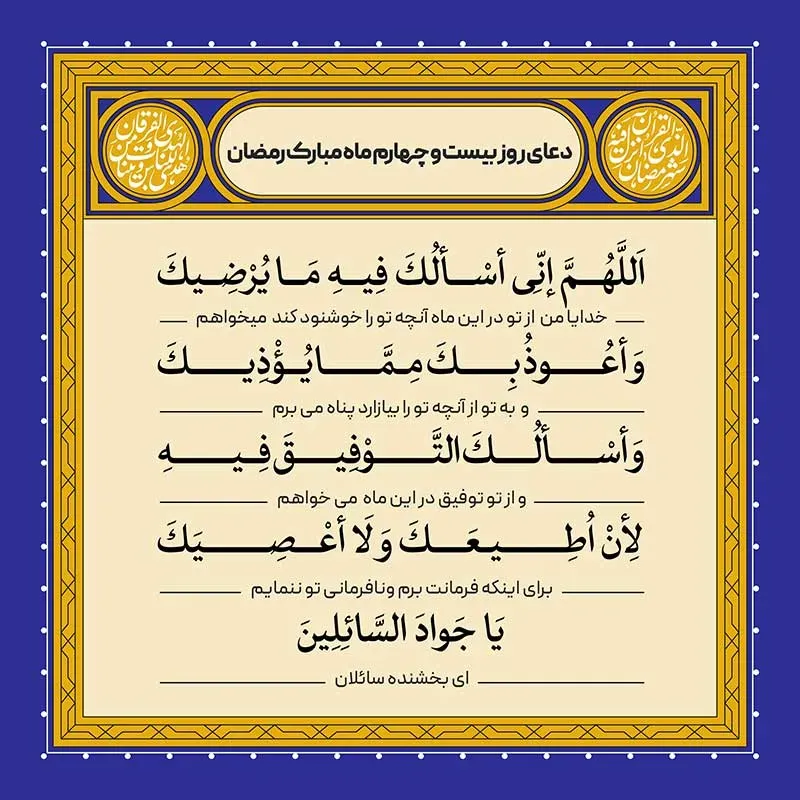 دعای روز بیست و چهارم ماه مبارک رمضان
شهر رمضان الذی انزل فیه القرآن
هدی للناس و بینات من الهدی و الفرقان
اَللَّهُمَّ إنِّی أسْألُكَ فِیهِ مَا یُرْضِیكَ
خدایا من از تو در این ماه آنچه تو را خوشنود کند میخواهم
وَأعُوذُ بِكَ مِمَّا یُؤْذِیكَ
و به تو از آنچه تو را بیازارد پناه می برم
وَأسْألُكَ التَّوْفِیقَ فِیهِ
و از تو توفیق در این ماه می خواهم
لِأنْ اُطِیعَكَ وَلَا أعْصِیَكَ
برای اینکه فرمانت برم ونافرمانی تو ننمایم
یَا جَوادَ السَّائِلِینَ
ای بخشنده سائلان